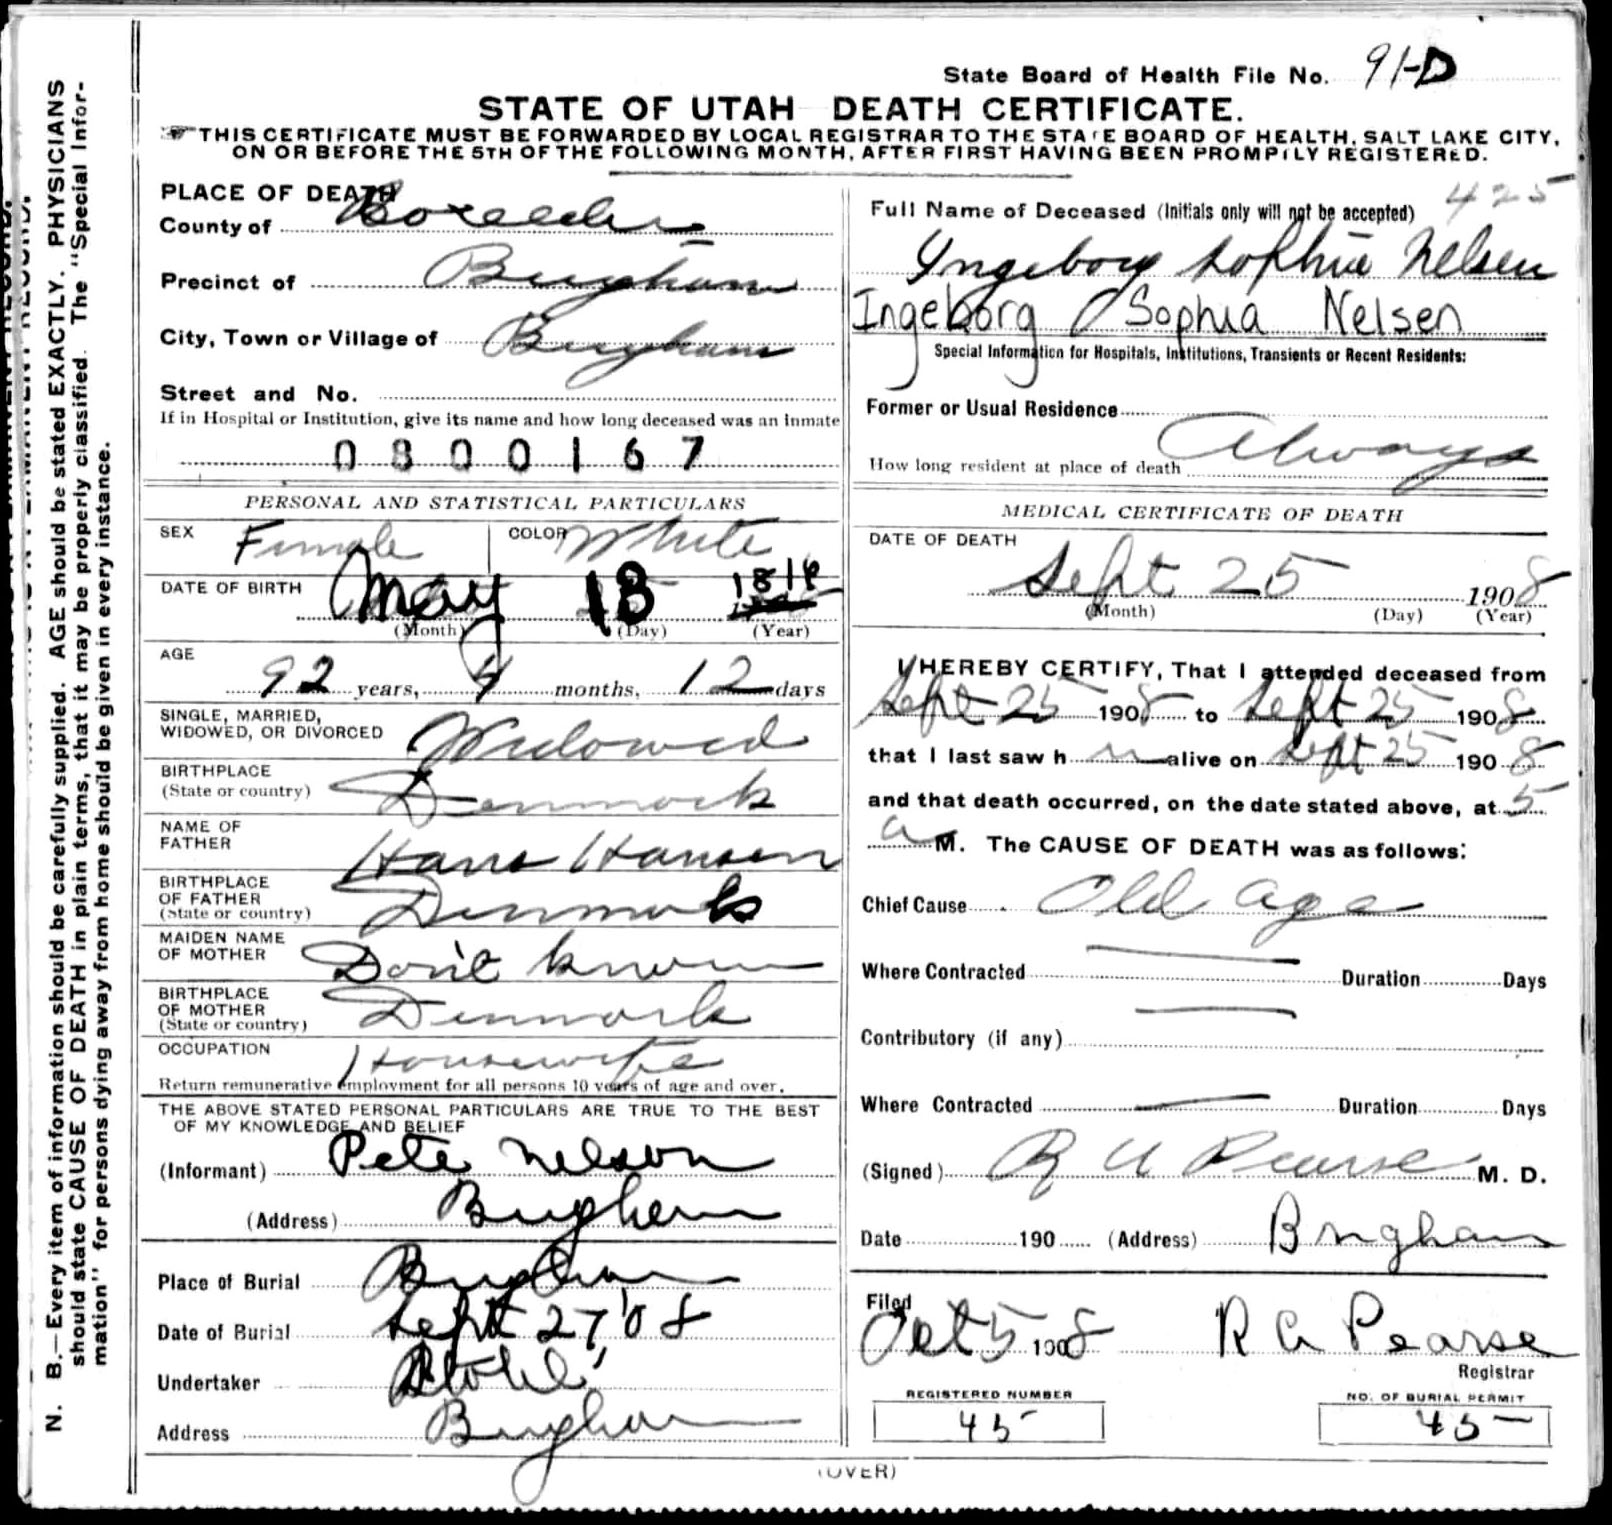 State Board of Health File No. 91-D
STATE OF UTAH DEATH CERTIFICATE.
THIS CERTIFICATE MUST BE FORWARDED BY LOCAL REGISTRAR TO THE STATE BOARD OF HEALTH, SALT LAKE CITY,
ON OR BEFORE THE 5TH OF THE FOLLOWING MONTH, AFTER FIRST HAVING BEEN PROMPTLY REGISTERED.
N. B.—Every item of information should be carefully supplied. AGE should be stated EXACTLY. PHYSICIANS
should state CAUSE OF DEATH in plain terms, that it may be properly classified. The "Special Infor-
mation" for persons dying away from home should be given in every instance.
PLACE OF DEATH
County of Boxelder
Precinct of Brigham
City, Town or Village of Brigham
Street and No.
If in Hospital or Institution, give its name and how long deceased was an inmate
0800167
PERSONAL AND STATISTICAL PARTICULARS
SEX Female COLOR White
DATE OF BIRTH May 18 1816
(Month) (Day) (Year)
AGE
92 years, 4 months, 12 days
SINGLE, MARRIED,
WIDOWED, OR DIVORCED Widowed
BIRTHPLACE
(State or country) Denmark
NAME OF
FATHER Hans Hansen
BIRTHPLACE
OF FATHER
(State or country) Denmark
MAIDEN NAME
OF MOTHER Don't know
BIRTHPLACE
OF MOTHER
(State or country) Denmark
OCCUPATION Housewife
Return remunerative employment for all persons 10 years of age and over.
THE ABOVE STATED PERSONAL PARTICULARS ARE TRUE TO THE BEST
OF MY KNOWLEDGE AND BELIEF
(Informant) Pete Nelson
(Address) Brigham
Place of Burial Brigham
Date of Burial Sept 27 '08
Undertaker
Address Brigham
425
Full Name of Deceased (Initials only will not be accepted)
Yngeborg Sophie Nelsen
Ingeborg Sophia Nelsen
Special Information for Hospitals, Institutions, Transients or Recent Residents:
Former or Usual Residence
How long resident at place of death Always
MEDICAL CERTIFICATE OF DEATH
DATE OF DEATH
Sept 25 1908
(Month) (Day) (Year)
I HEREBY CERTIFY, That I attended deceased from
Sept 25 1908 to Sept 25 1908
that I last saw h alive on Sept 25 1908
and that death occurred, on the date stated above, at 5
a M. The CAUSE OF DEATH was as follows:
Chief Cause Old age
Where Contracted Duration Days
Contributory (if any)
Where Contracted Duration Days
(Signed) R A Pearse M. D.
Date 190 (Address) Brigham
Filed
Oct 5 1908 R A Pearse
Registrar
REGISTERED NUMBER NO. OF BURIAL PERMIT
45 45
(OVER)